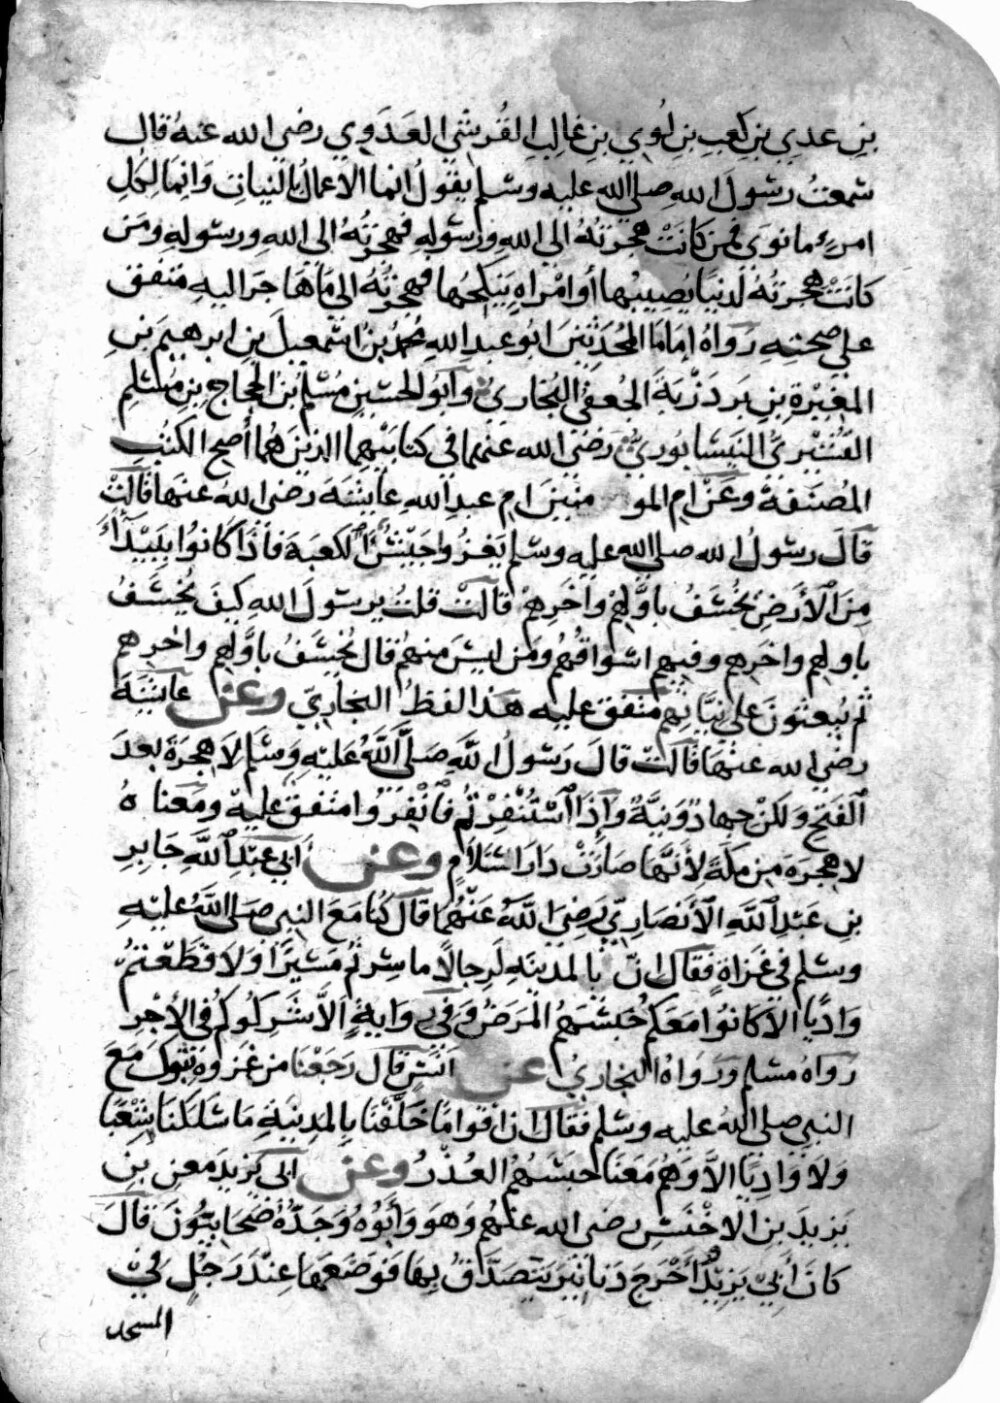 بنِ عدي بنِ كعبِ بنِ لُوي بنِ غالِبِ القُرشيِ العَدَوِي رضي الله عنهُ قال
سمعتُ رسُولَ اللهِ صلي الله عليه وسلم يقُولُ انما الاعمالُ بالنياتِ وَانِمَا لِكلِ
امرءٍ ما نوَي فمن كانَتْ هجرتهُ الي اللهِ ورسُولهِ فهجرتُهُ الي اللهِ ورسُولهِ ومَن
كانَتْ هجرتهُ لدنيَا يُصِيبُها أوامْراةٍ يَنكحُها فهجرتُهُ الي مَا هَاجرَ اليهِ متفقق
علي صحتهِ رَوَاهُ امَامَا المُحَدِثينَ ابُو عبدِ اللهِ محمدُ بنُ اسْمعيلَ بنِ ابرهيمَ بنِ
المغيرةِ بنِ بَردَزْبَهَ الجُعفي البُخاريُ وابَوُ الحسينِ مُسْلمُ بنُ الحجاجِ بنِ مُسْلمِ
القُشيْريُّ النَيسَابُوريُّ رضَي الله عنهما في كتابَيْهما الذينَ هُمَا أصح الكتُب
المُصنَفةُ وعَنْ امِ المو منينَ امِ عبدِ اللهِ عايشَةَ رضي اللهُ عنهَا قالَتْ
قالَ رسُولُ الله صلي الله عليه وسلم يَغزُوا جَيْشٌ ٱلكعبَةَ فاذَا كانوُا ببَيْدَآءَ
مِنَ ٱلأَرضِ يُخْسَفُ باوَّلِهِمْ واٰخرِهِمْ قالَتْ قلتُ يرسُولَ اللهِ كيفَ يُخسَفُ
باولِهم واٰخرِهِم وفيهِم اسْواقُهُمْ ومَن ليسَ منهُم قالَ يُخسَفُ باوَّلهم واٰخرِهم
ثُم يُبعثُونَ علي نيَّاتِهم متفق عليه هذا لفظ البخاري وعن عايشَةَ
رضي الله عنهَا قَالَتْ قالَ رسُولُ اللَّهِ صَلَّي ٱللَّهُ عَلَيْهِ وَسَلم لاَهجرَةَ بعدَ
ٱلفَتْحِ وَلكنْ جِهادٌ وَنِيَّةٌ وَاذَا ٱسْتُنْفِرْتُمْ فٱنْفِرُوا متفق عليهْ ومَعناهُ
لا هجرَةَ مِن مكَةَ لأَنَّهَا صَارَتْ دَارَ اسْلاَمٍ وعن أبي عَبْدِ ٱللَّهِ جَابِرِ
بنِ عَبْدِ ٱللَّهِ ٱلأَنصَارِيِّ رَضِيَ اللَّهُ عَنْهُمَا قالَ كُنَا مَعَ النبيِ صَلَي اللَّهُ عَليْهِ
وسلم في غَزَاةٍ فَقالَ انَّ بالمدينَةِ لَرِجالاً ما سِرتُمْ مَسيْرًا وَلاَ قَطَعْتمُ
وَادِيًا الاَّ كانوُا مَعَكُمْ حَبسَهُمُ المَرَضُ وَفي رِوايةٍ اَلاَّ شَرَكُوكُم في الأجْرِ
رَوَاهُ مسْلم وَرَوَاهُ البخاريُ عن انَسٍ قالَ رَجَعْنا من غزوةِ تبُوكَ مَعَ
النبي صلي اللهُ عليه وسلم فقالَ انَ اقوامًا خَلَّفْنَا بِالمدِينَةِ مَا سَلكنَا شِعْبًا
وَلاَ وَادِيًا الاَّ وَهُم مَعَنَا حبَسَهُمُ العُذْرُ وعن ابي يَزيدَ معنِ بنِ
يزيدَ بنِ الاخْنَسِ رضي الله عنْهُم وهوَ وَأبَوُهُ وَجَدُّهُ صَحَابِيُونَ قالَ
كانَ أبيْ يَزِيْدُ أَخْرَجَ دَنانيْرَ يتَصَدَّقُ بِهَا فَوَضَعَهَا عِنْدَ رَجُلٍ فيْ
المسجد